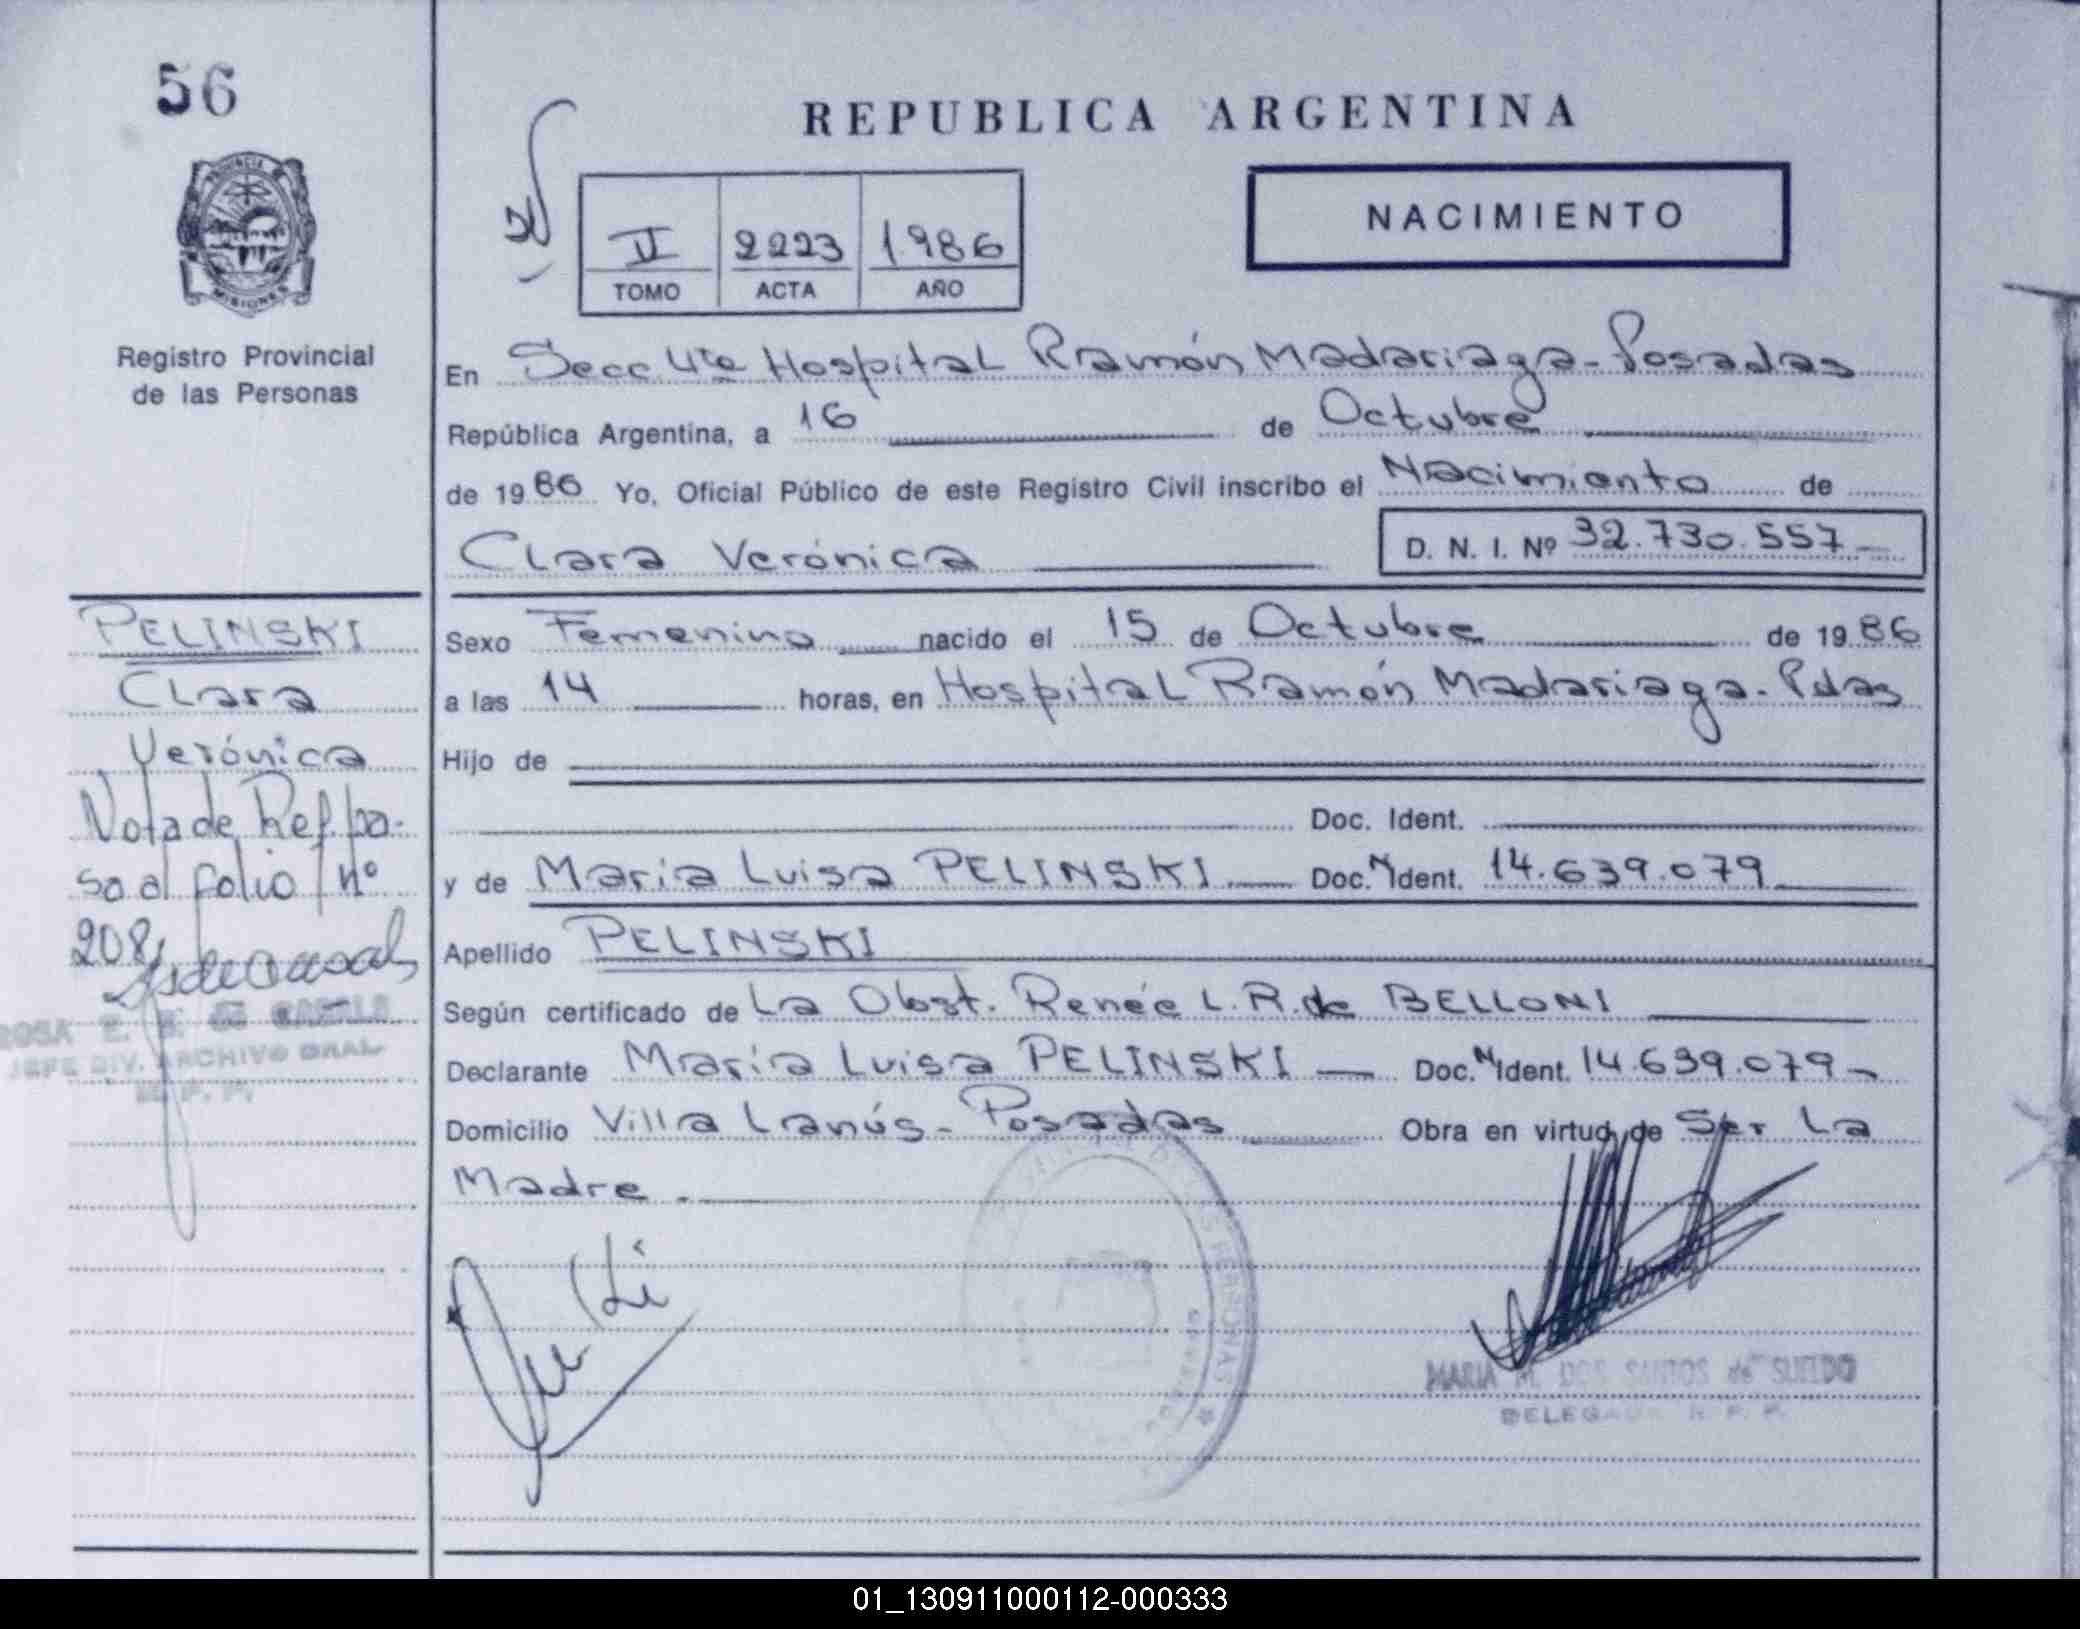 56
PROVINCIA
MISIONES
Registro Provincial
de las Personas
REPUBLICA ARGENTINA
NACIMIENTO
II 2223 1986
TOMO ACTA AÑO
En Secc 4ta Hospital Ramón Madariaga - Posadas
República Argentina, a 16 de Octubre
de 1986 Yo, Oficial Público de este Registro Civil inscribo el Nacimiento de
Clara Verónica D. N. I. Nº 32.730.557
PELINSKI
Clara
Verónica
Nota de Ref. pa-
sa al folio nº
208
JEFE DIV. ARCHIVO GRAL
Sexo Femenino nacido el 15 de Octubre de 1986
a las 14 horas, en Hospital Ramón Madariaga - Pdas
Hijo de
Doc. Ident.
y de Maria Luisa PELINSKI Doc. N Ident. 14.639.079
Apellido PELINSKI
Según certificado de La Obst. Renée L. R. de BELLONI
Declarante María Luisa PELINSKI Doc. N Ident. 14.639.079
Domicilio Villa Lanús - Posadas Obra en virtud de Ser La
Madre.
MARIA M. DOS SANTOS de SUELDO
DELEGADA R. P. P.
01_130911000112-000333